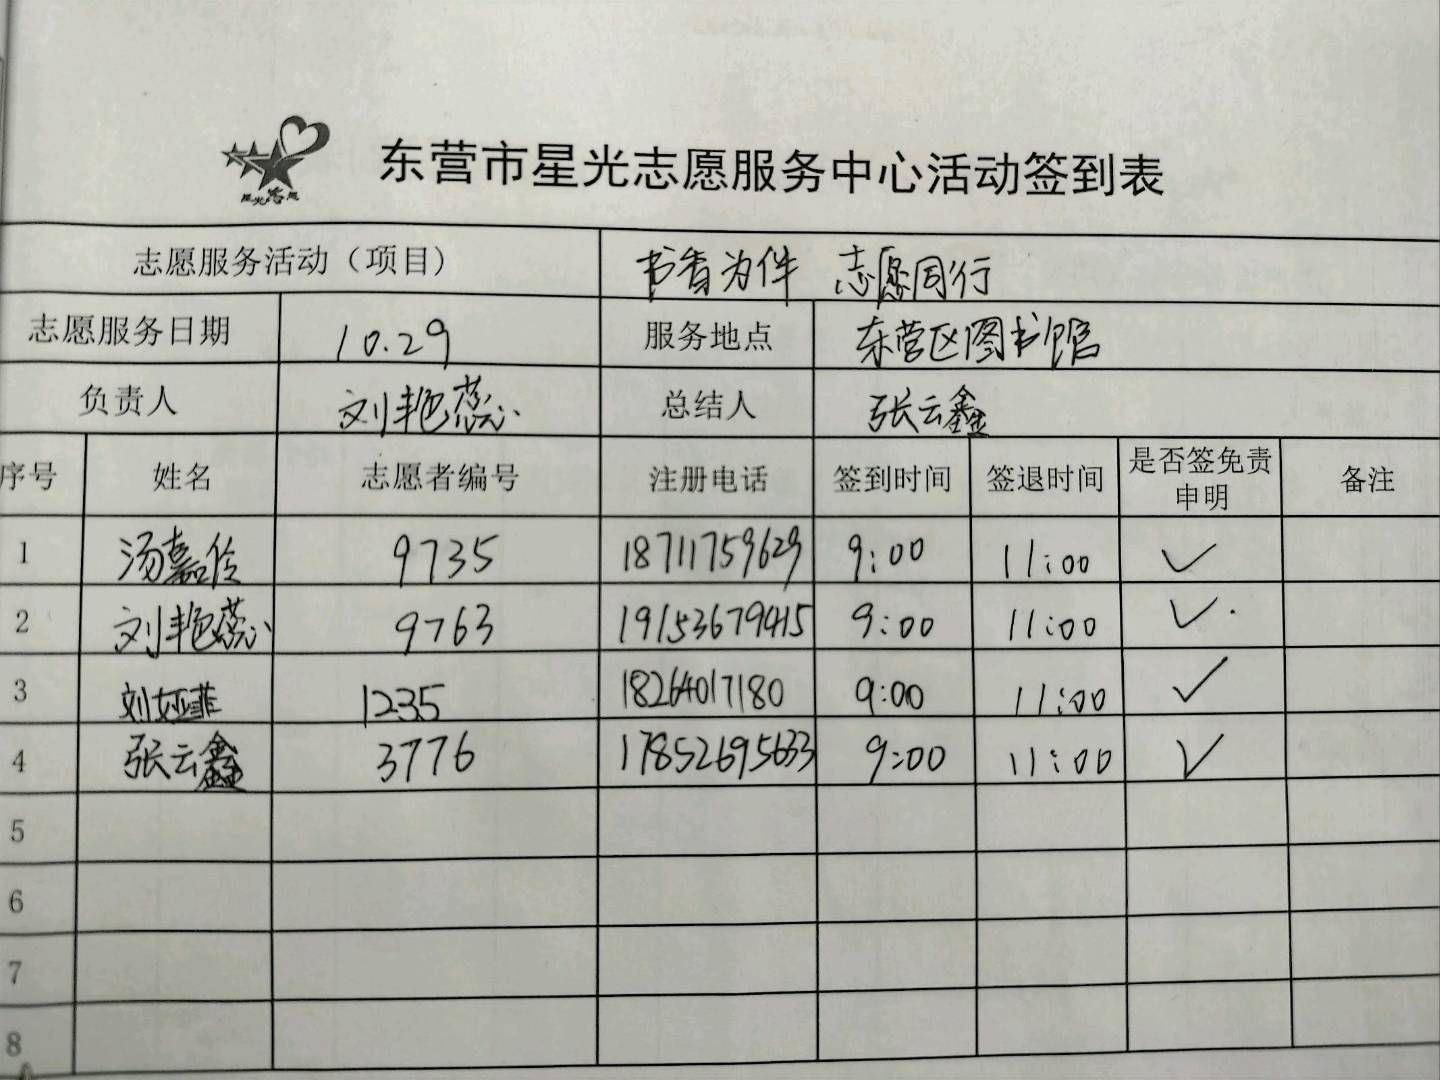 星光志愿
东营市星光志愿服务中心活动签到表
志愿服务活动（项目） 书香为伴 志愿同行
志愿服务日期 10.29 服务地点 东营区图书馆
负责人 刘艳蕊 总结人 张云鑫
序号 姓名 志愿者编号 注册电话 签到时间 签退时间 是否签免责申明 备注
1 汤嘉伶 9735 18711759629 9:00 11:00 ✓
2 刘艳蕊 9763 19153679415 9:00 11:00 ✓
3 刘娅菲 1235 18264017180 9:00 11:00 ✓
4 张云鑫 3776 17852695633 9:00 11:00 ✓
5
6
7
8